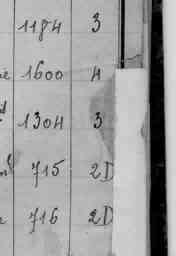 1184 3
1600 4
1304 3
715 2D
716 2D